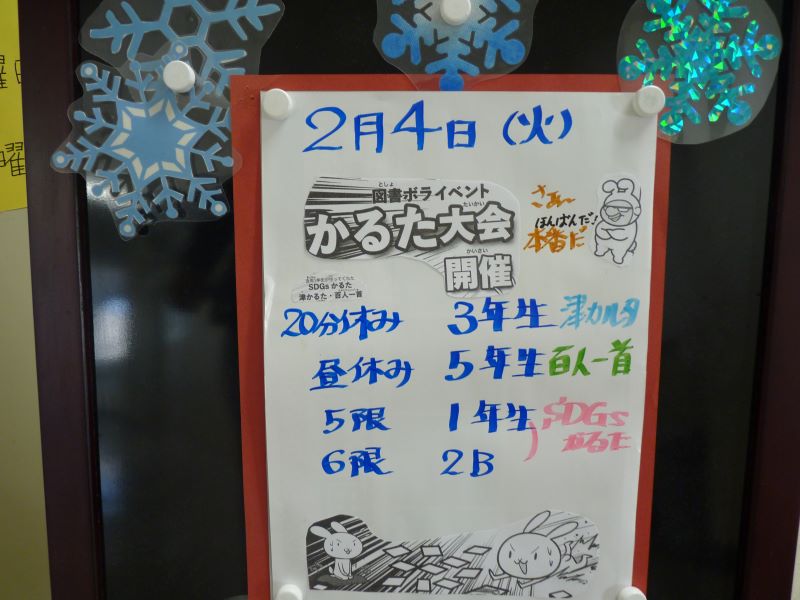 2月4日(火)
図書ボライベント
としょ
かるた大会
たいかい
開催
かいさい
さぁ〜
ほんばんだ!
本番だ
SDGsかるた
津かるた・百人一首
20分休み 3年生 津カルタ
昼休み 5年生 百人一首
5限 1年生 SDGs
かるた
6限 2B
曜
曜